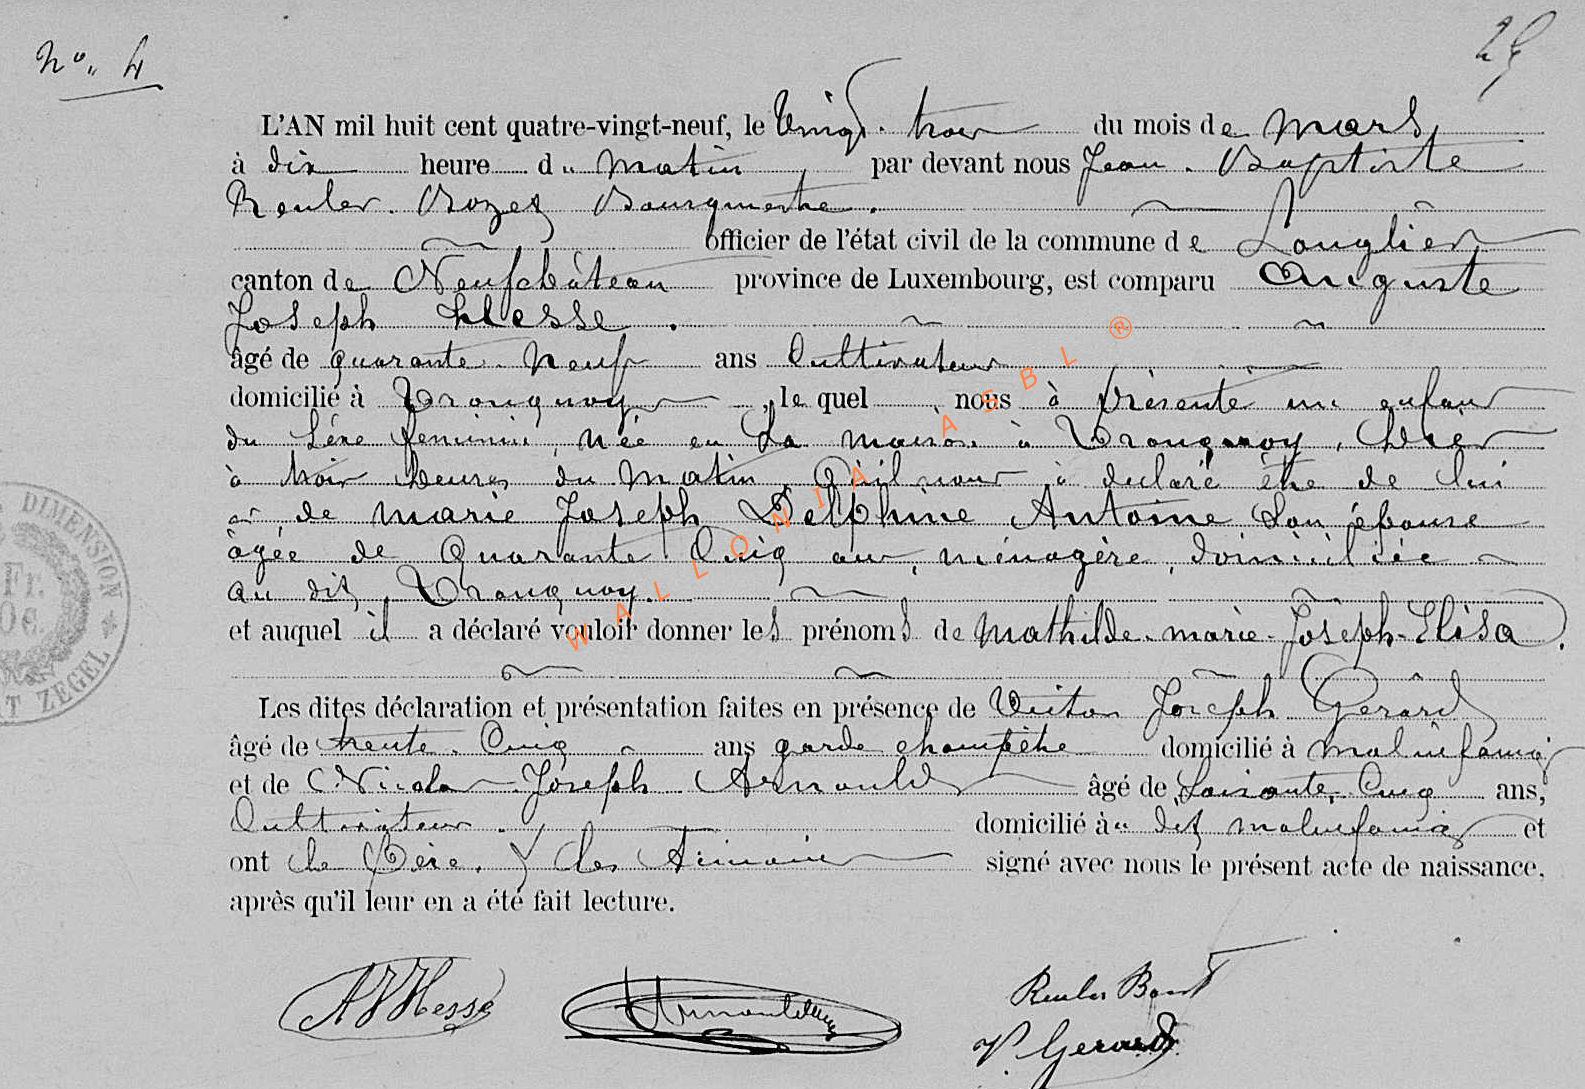 N°. 4
L'AN mil huit cent quatre-vingt-neuf, le Vingt-trois du mois de Mars,
à dix heure du Matin par devant nous Jean-Baptiste
Reuler. Bourgmestre.
officier de l'état civil de la commune de Longlier
canton de Neufchâteau province de Luxembourg, est comparu Auguste
Joseph Hesse.
âgé de quarante-neuf ans Cultivateur
domicilié à Tronquoy, le quel nous à présenté un enfant
du sexe feminin, née en sa maison à Tronquoy, hier
à trois heures du Matin, qu'il nous à declaré être de lui
et de Marie Joseph Delphine Antoine son épouse
âgée de Quarante Cinq ans, ménagère, domiciliée
au dit Tronquoy.
et auquel il a déclaré vouloir donner les prénoms de Mathilde-Marie-Joseph-Elisa.
Les dites déclaration et présentation faites en présence de Victor Joseph Gerard
âgé de trente-Cinq ans garde champêtre domicilié à Massul
et de Nicolas-Joseph Arnould âgé de Soixante-Cinq ans,
Cultivateur. domicilié au dit et
ont le Père, & les témoins signé avec nous le présent acte de naissance,
après qu'il leur en a été fait lecture.
AJ Hesse
Arnould
Reuler Bourg
V. Gerard
DIMENSION
Fr.
ZEGEL
WALLONIA ASBL ®